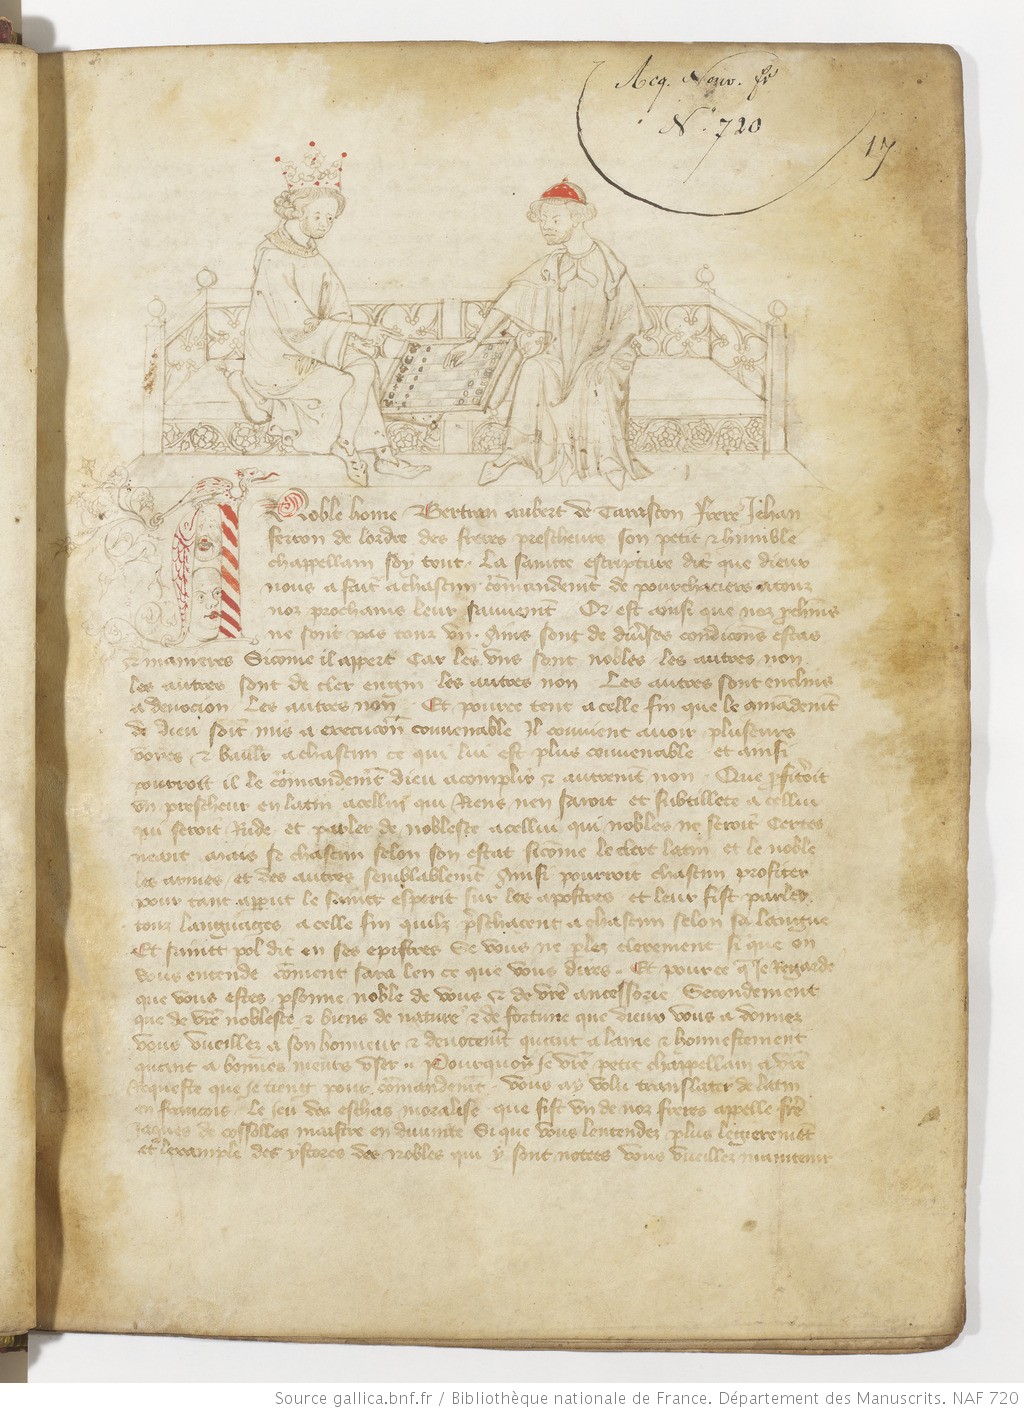 Acq. Nouv. fr
N° 720
17
Noble home Bertran aubert de Tarascon frere Jehan
ferron de lordre des freres prescheurs son petit & humble
chappellain soy tout. La saincte escripture dit que dieux
nous a fait a chascun commandement de pourchacier a touz
noz prochains leur sauvement. Or est ainsi que noz
ne sont pas touz un. Ains sont de diverses condicions estas
& manieres Sicome il appert Car les uns sont nobles les autres non
les autres sont de cler engin les autres non Les autres sont enclins
a devocion Les autres non. Et pource tent a celle fin que le
de dieu soit mis a execucion convenable Il convient avoir pluseurs
voyes & baillir a chascun ce qui lui est plus convenable et ainsi
pourroit il le dieu acomplir & autrement non. Que
un prescheur en latin a cellui qui Riens nen saroit et subtillete a cellui
qui seroit Rude et parler de noblesse a cellui qui nobles ne seroit Certes
neant mais se chascun selon son estat sicome le clerc latin et le noble
les armes et des autres Ainsi pourroit chascun profiter
pour tant apparut le sainct esperit sur les apostres et leur fist parler
touz languages a celle fin quilz a chascun selon sa langue
Et sainct pol dit en ses epistres Se vous ne parlez clerement si que on
vous entende comment sara len ce que vous dires. Et pource que Je Regarde
que vous estes personne noble de vous & de vre ancessorie Secondement
que de vre noblesse & biens de nature & de fortune que dieux vous a donnez
vous vueillez a son honneur & quant a lame & honnestement
quant a bonnes meurs user. Pourquoy Je vre petit chappellain a vre
Requeste que Je tieng pour vous ay volu translater de latin
en francois Le Jeu des eschas moralise que fist un de noz freres appelle frere
Jaques de cossolles maistre en divinite Si que vous lentendez plus
et lexample des ystores des nobles qui y sont notees vous vueillez maintenir
Source gallica.bnf.fr / Bibliothèque nationale de France. Département des Manuscrits. NAF 720